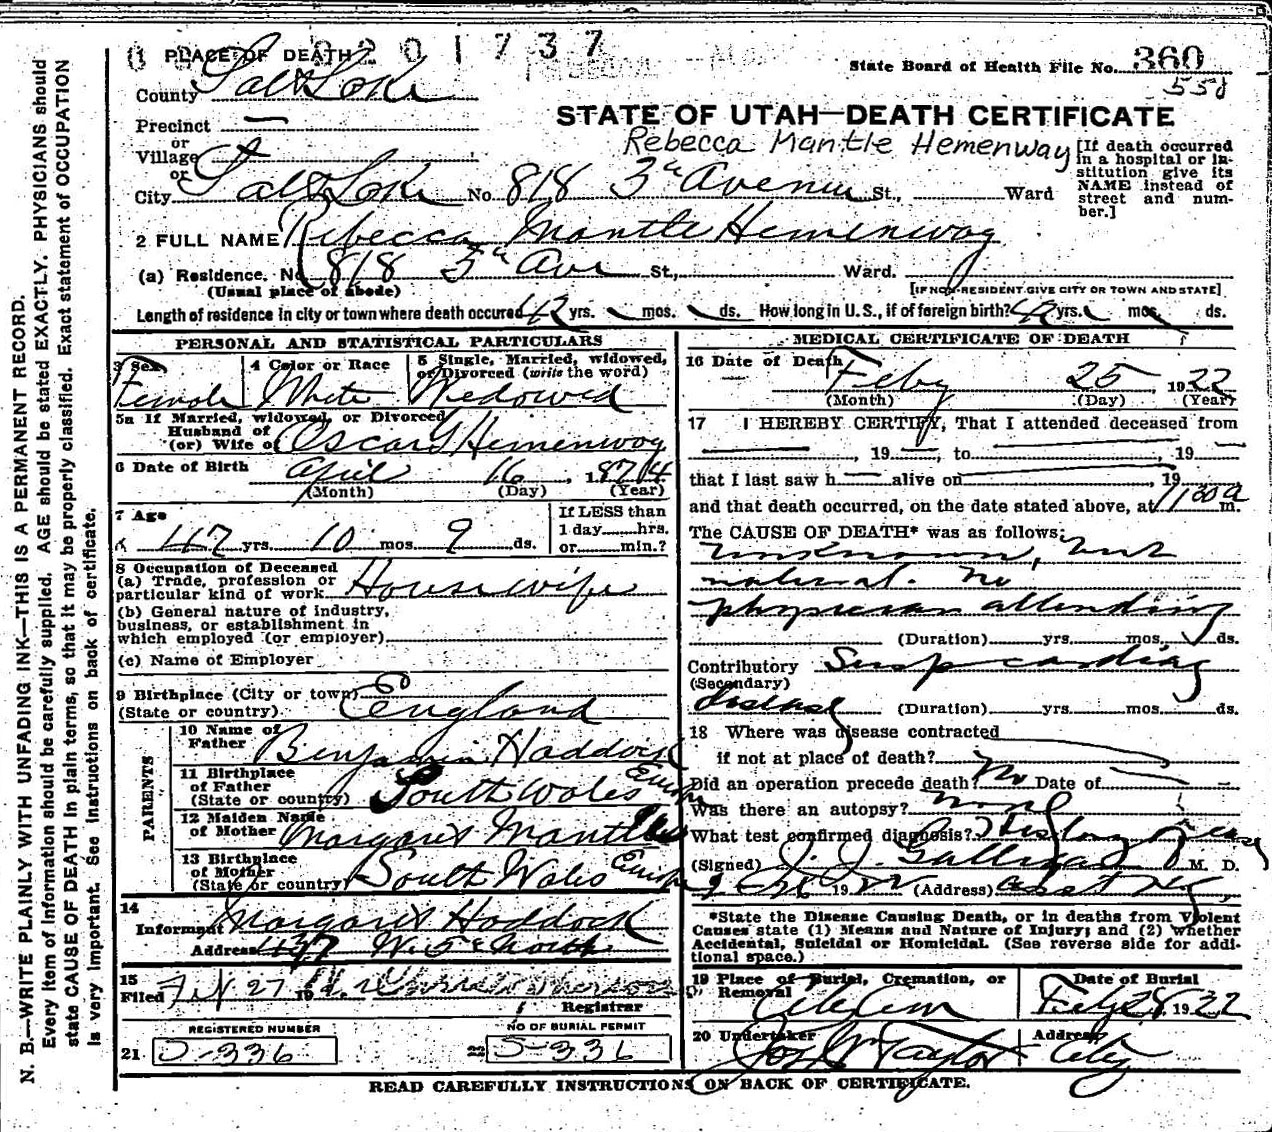 0201737
1 PLACE OF DEATH
State Board of Health File No. 360
558
County Salt Lake
STATE OF UTAH—DEATH CERTIFICATE
Precinct —
or
Village
or
Rebecca Mantle Hemenway
[If death occurred in a hospital or institution give its NAME instead of street and number.]
City Salt Lake No. 818 3rd Avenue St., Ward
2 FULL NAME Rebecca Mantle Hemenway
(a) Residence. No. 818 3rd Ave St., Ward.
(Usual place of abode) [IF NON-RESIDENT GIVE CITY OR TOWN AND STATE]
Length of residence in city or town where death occured 42 yrs. mos. ds. How long in U. S., if of foreign birth? 42 yrs. mos. ds.
PERSONAL AND STATISTICAL PARTICULARS
3 Sex Female
4 Color or Race White
5 Single, Married, widowed, or Divorced (write the word) Wedowed
5a If Married, widowed, or Divorced
Husband of
(or) Wife of Oscar Hemenway
6 Date of Birth April 16, 1874
(Month) (Day) (Year)
7 Age 47 yrs. 10 mos 9 ds.
If LESS than
1 day hrs.
or min.?
8 Occupation of Deceased
(a) Trade, profession or particular kind of work Housewife
(b) General nature of industry, business, or establishment in which employed (or employer)
(c) Name of Employer
9 Birthplace (City or town)
(State or country) England
PARENTS
10 Name of Father Benjamin Haddock
11 Birthplace of Father (State or country) South Wales
12 Maiden Name of Mother Margaret Mantle
13 Birthplace of Mother (State or country) South Wales
14
Informant Margaret Haddock
Address 437 W. 5th North
15
Filed Feb 27 19
Registrar
REGISTERED NUMBER
21 D-336
NO OF BURIAL PERMIT
22 S-336
MEDICAL CERTIFICATE OF DEATH
16 Date of Death Feby 25 1922
(Month) (Day) (Year)
17 I HEREBY CERTIFY, That I attended deceased from
, 19 , to , 19
that I last saw h alive on , 19
and that death occurred, on the date stated above, at 1130 a m.
The CAUSE OF DEATH* was as follows:
unknown, but
natural. No
physician attending
(Duration) yrs. mos. ds.
Contributory Susp cardiac
(Secondary)
disease (Duration) yrs. mos. ds.
18 Where was disease contracted
if not at place of death?
Did an operation precede death? No Date of
Was there an autopsy? none
What test confirmed diagnosis? History
(Signed) M. D.
19 (Address)
*State the Disease Causing Death, or in deaths from Violent
Causes state (1) Means and Nature of Injury; and (2) whether
Accidental, Suicidal or Homicidal. (See reverse side for additional space.)
19 Place of Burial, Cremation, or Removal City Cem
Date of Burial Feby 28, 1922
20 Undertaker Jos Wm Taylor
Address City
READ CAREFULLY INSTRUCTIONS ON BACK OF CERTIFICATE.
N. B.—WRITE PLAINLY WITH UNFADING INK—THIS IS A PERMANENT RECORD.
Every item of information should be carefully supplied. AGE should be stated EXACTLY. PHYSICIANS should
state CAUSE OF DEATH in plain terms, so that it may be properly classified. Exact statement of OCCUPATION
is very important. See instructions on back of certificate.